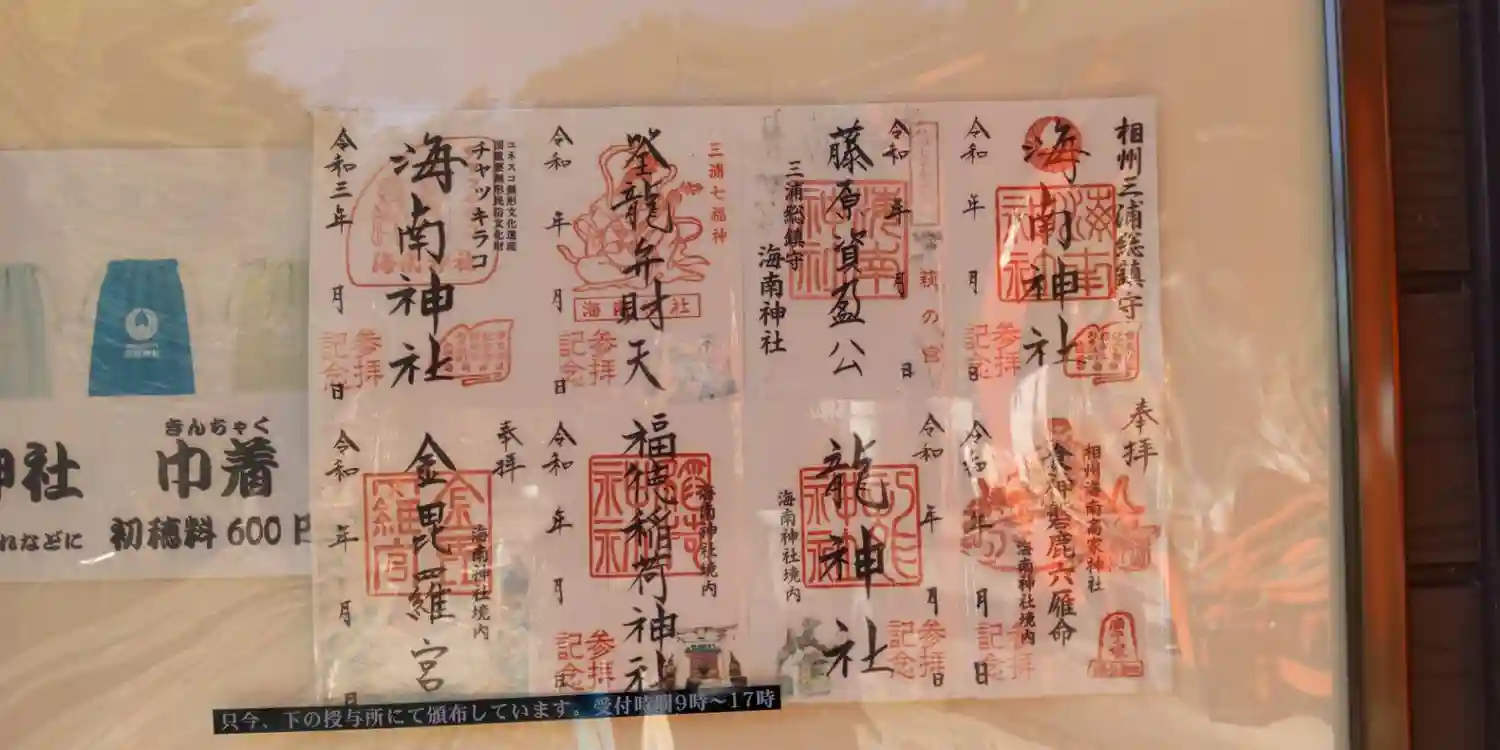 相州三浦総鎮守
海南神社
令和 年 月 日
参拝
記念
萩の宮
令和 年 月 日
藤原資盈公
三浦総鎮守
海南神社
海南
神社
三浦七福神
登龍弁財天
令和 年 月 日
参拝
記念
ユネスコ無形文化遺産
国重要無形民俗文化財
チャッキラコ
海南神社
令和三年 月 日
参拝
記念
奉拝
相州海南高家神社
食神磐鹿六雁命
海南神社境内
令和 年 月 日
参拝
記念
令和 年 月 日
龍神社
海南神社境内
参拝
記念
海南神社境内
福徳稲荷神社
令和 年 月
参拝
記念
奉拝
海南神社境内
金毘羅宮
令和 年 月 日
神社
きんちゃく
巾着
れなどに
初穂料600円
只今、下の授与所にて頒布しています。受付時間9時〜17時